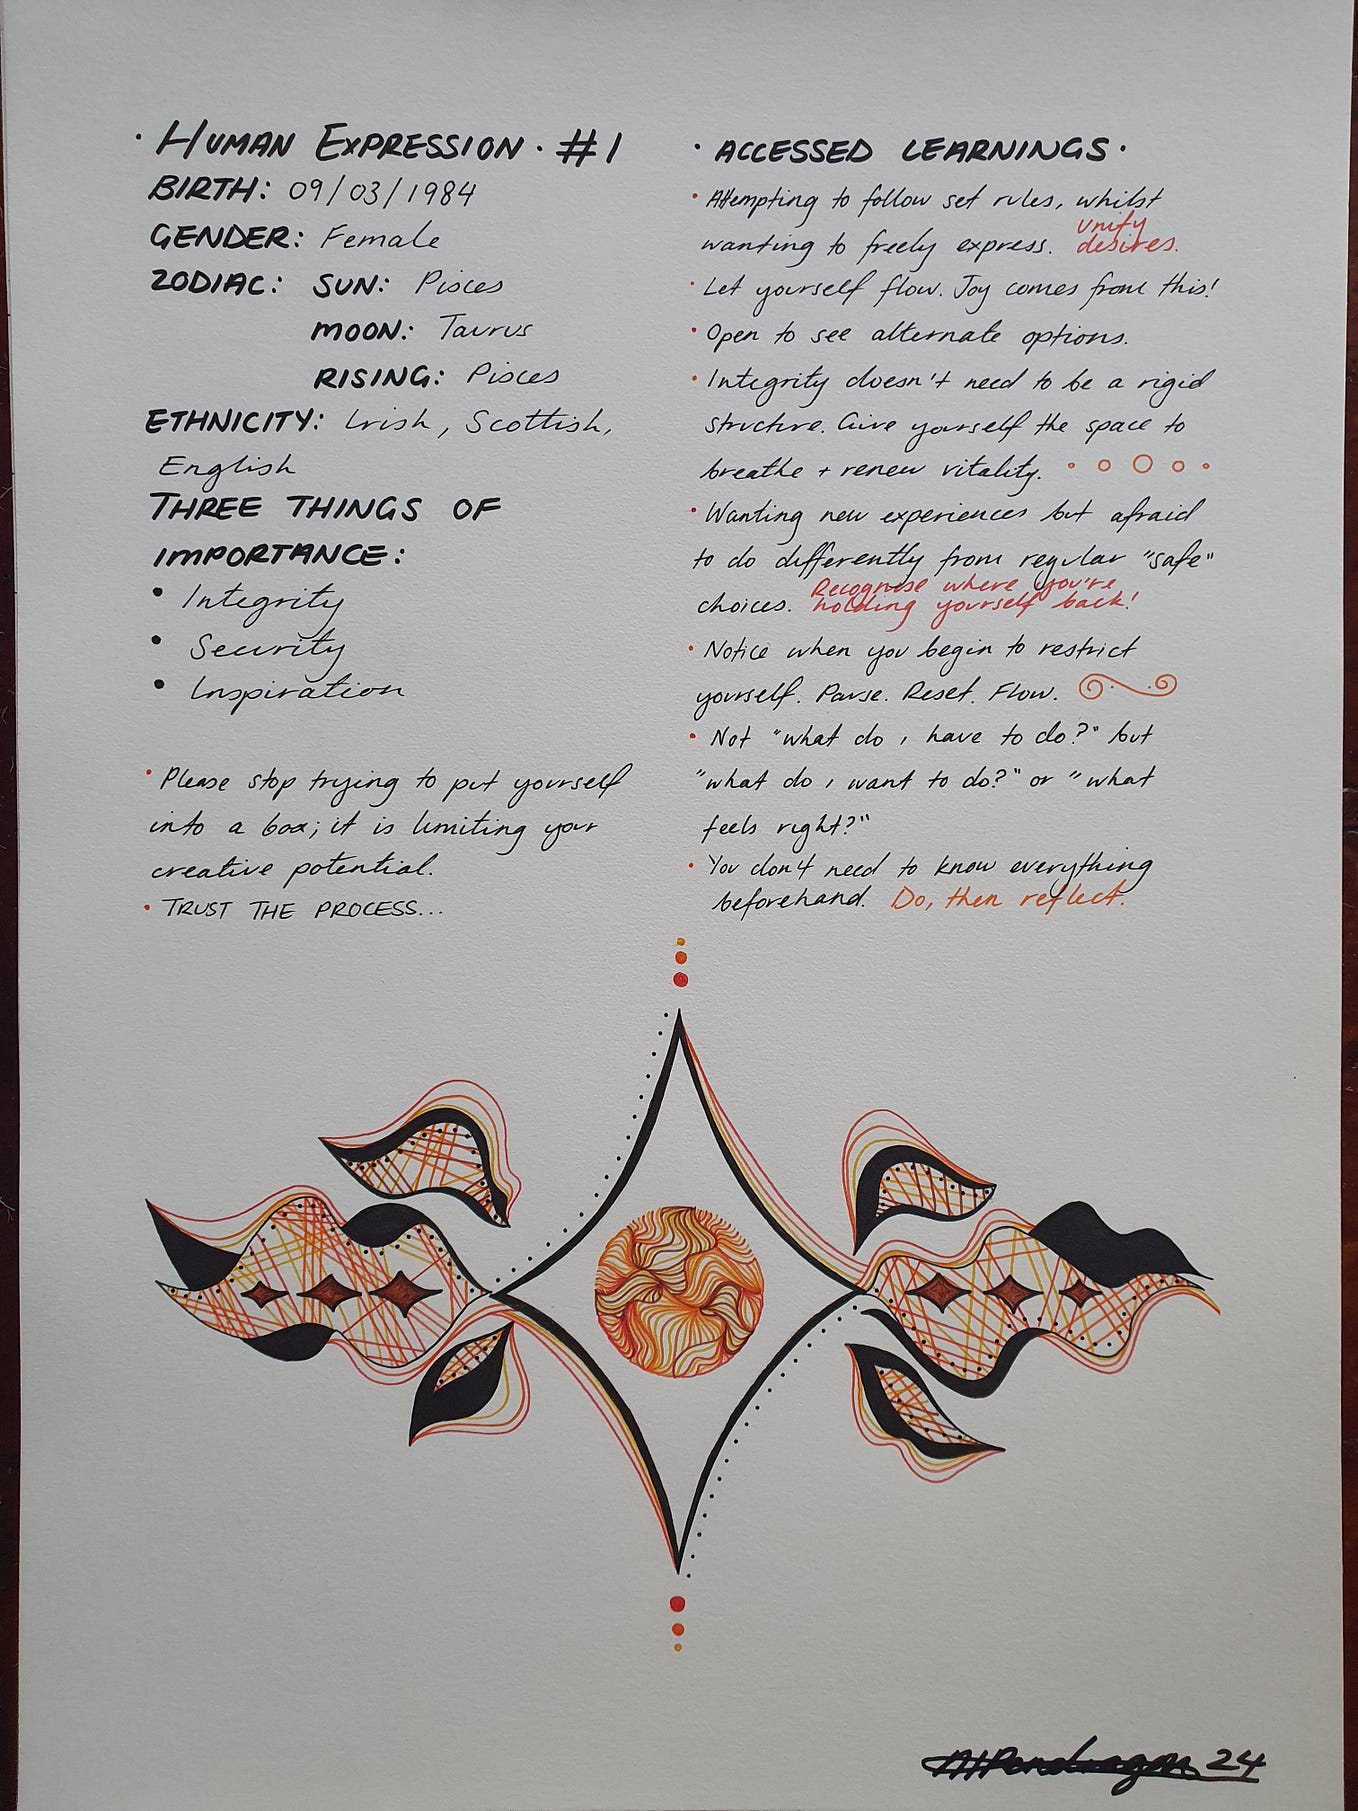 · HUMAN EXPRESSION · #1
BIRTH: 09/03/1984
GENDER: Female
ZODIAC: SUN: Pisces
MOON: Taurus
RISING: Pisces
ETHNICITY: Irish, Scottish,
English
THREE THINGS OF
IMPORTANCE:
• Integrity
• Security
• Inspiration
• Please stop trying to put yourself
into a box; it is limiting your
creative potential.
• TRUST THE PROCESS...
· ACCESSED LEARNINGS ·
• Attempting to follow set rules, whilst
wanting to freely express. unify
desires.
• Let yourself flow. Joy comes from this!
• Open to see alternate options.
• Integrity doesn't need to be a rigid
structure. Give yourself the space to
breathe + renew vitality.
• Wanting new experiences but afraid
to do differently from regular "safe"
choices. Recognise where you're
holding yourself back!
• Notice when you begin to restrict
yourself. Pause. Reset. Flow.
• Not "what do i have to do?" but
"what do i want to do?" or "what
feels right?"
• You don't need to know everything
beforehand. Do, then reflect.
AHPendragon 24